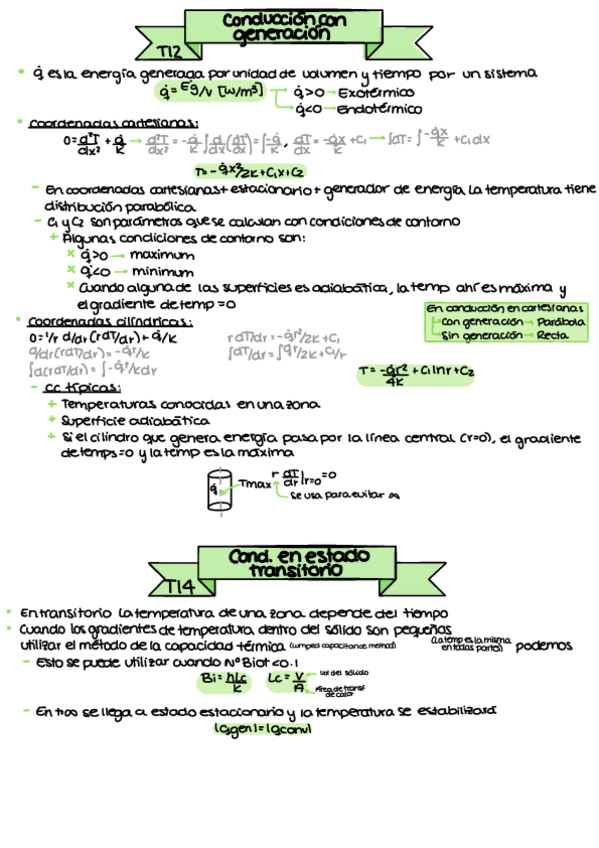 Conducción con
generación
T12
• q̇ es la energía generada por unidad de volumen y tiempo por un sistema
q̇ = Ėg/V [W/m³] → q̇>0 → Exotérmico
→ q̇<0 → Endotérmico
• Coordenadas cartesianas:
0 = d²T/dx² + q̇/K → d²T/dx² = -q̇/K ∫ d/dx (dT/dx) = ∫ -q̇/K , dT/dx = -q̇x/K + C₁ → ∫dT = ∫ -q̇x/K + C₁dx
T = -q̇x²/2K + C₁x + C₂
- En coordenadas cartesianas + estacionario + generador de energía la temperatura tiene
distribución parabólica
- C₁ y C₂ son parámetros que se calculan con condiciones de contorno
+ Algunas condiciones de contorno son:
× q̇>0 → maximum
× q̇<0 → minimum
× Cuando alguna de las superficies es adiabática, la temp ahí es máxima y
el gradiente de temp = 0
En conducción en cartesianas
Con generación → Parábola
Sin generación → Recta
• Coordenadas cilíndricas:
0 = 1/r d/dr (r dT/dr) + q̇/K
d/dr (r dT/dr) = -q̇r/K
∫d(r dT/dr) = ∫-q̇r/K dr
r dT/dr = -q̇r²/2K + C₁
∫dT/dr = ∫q̇r/2K + C₁/r
T = -q̇r²/4K + C₁ ln r + C₂
- CC típicas:
+ Temperaturas conocidas en una zona
+ Superficie adiabática
+ Si el cilindro que genera energía pasa por la línea central (r=0), el gradiente
de temps = 0 y la temp es la máxima
q̇ Tmax r dT/dr |r=0 = 0
se usa para evitar ∞
Cond. en estado
transitorio
T14
• En transitorio la temperatura de una zona depende del tiempo
• Cuando los gradientes de temperatura dentro del sólido son pequeños
(la temp es la misma en todas partes) podemos
utilizar el método de la capacidad térmica (lumped capacitance method)
- Esto se puede utilizar cuando NºBiot < 0.1
Bi = hLc/K Lc = V/A → Vol del sólido
Área de transf de calor
- En t=∞ se llega a estado estacionario y la temperatura se estabilizará
|qgen| = |qconv|